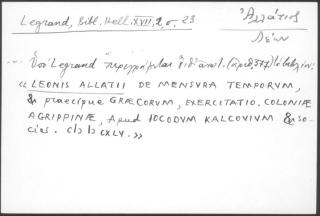 Legrand, Bibl. Hell. XVII, 2, σ. 23
Ἀλλάτιος
Λέων
Legrand
« LEONIS ALLATII DE MENSVRA TEMPORVM,
& praecipue GRÆCORVM, EXERCITATIO. COLONIÆ
AGRIPPINÆ, apud IOCODVM KALCOVIVM & so-
cios. CIƆ IƆ CXLV. »